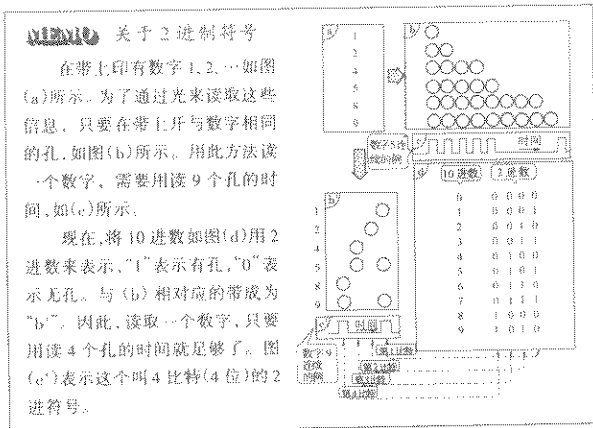 MEMO 关于2进制符号
在带上印有数字1、2、…如图
(a)所示。为了通过光来读取这些
信息，只要在带上开与数字相同
的孔，如图(b)所示。用此方法读
一个数字，需要用读9个孔的时
间，如(c)所示。
现在，将10进数如图(d)用2
进数来表示、"1"表示有孔，"0"表
示无孔。与(b)相对应的带成为
"b'"。因此，读取一个数字，只要
用读4个孔的时间就足够了。图
(c')表示这个叫4比特(4位)的2
进符号。
a
1
2
4
5
8
9
b
c
时间
数字5连
续的例
d
10进数 2进数
0 0 0 0 0
1 0 0 0 1
2 0 0 1 0
3 0 0 1 1
4 0 1 0 0
5 0 1 0 1
6 0 1 1 0
7 0 1 1 1
8 1 0 0 0
9 1 0 0 1
b'
1
2
4
5
8
9
c'
时间
数字9
连续
的例
第1比特
第2比特
第3比特
第4比特